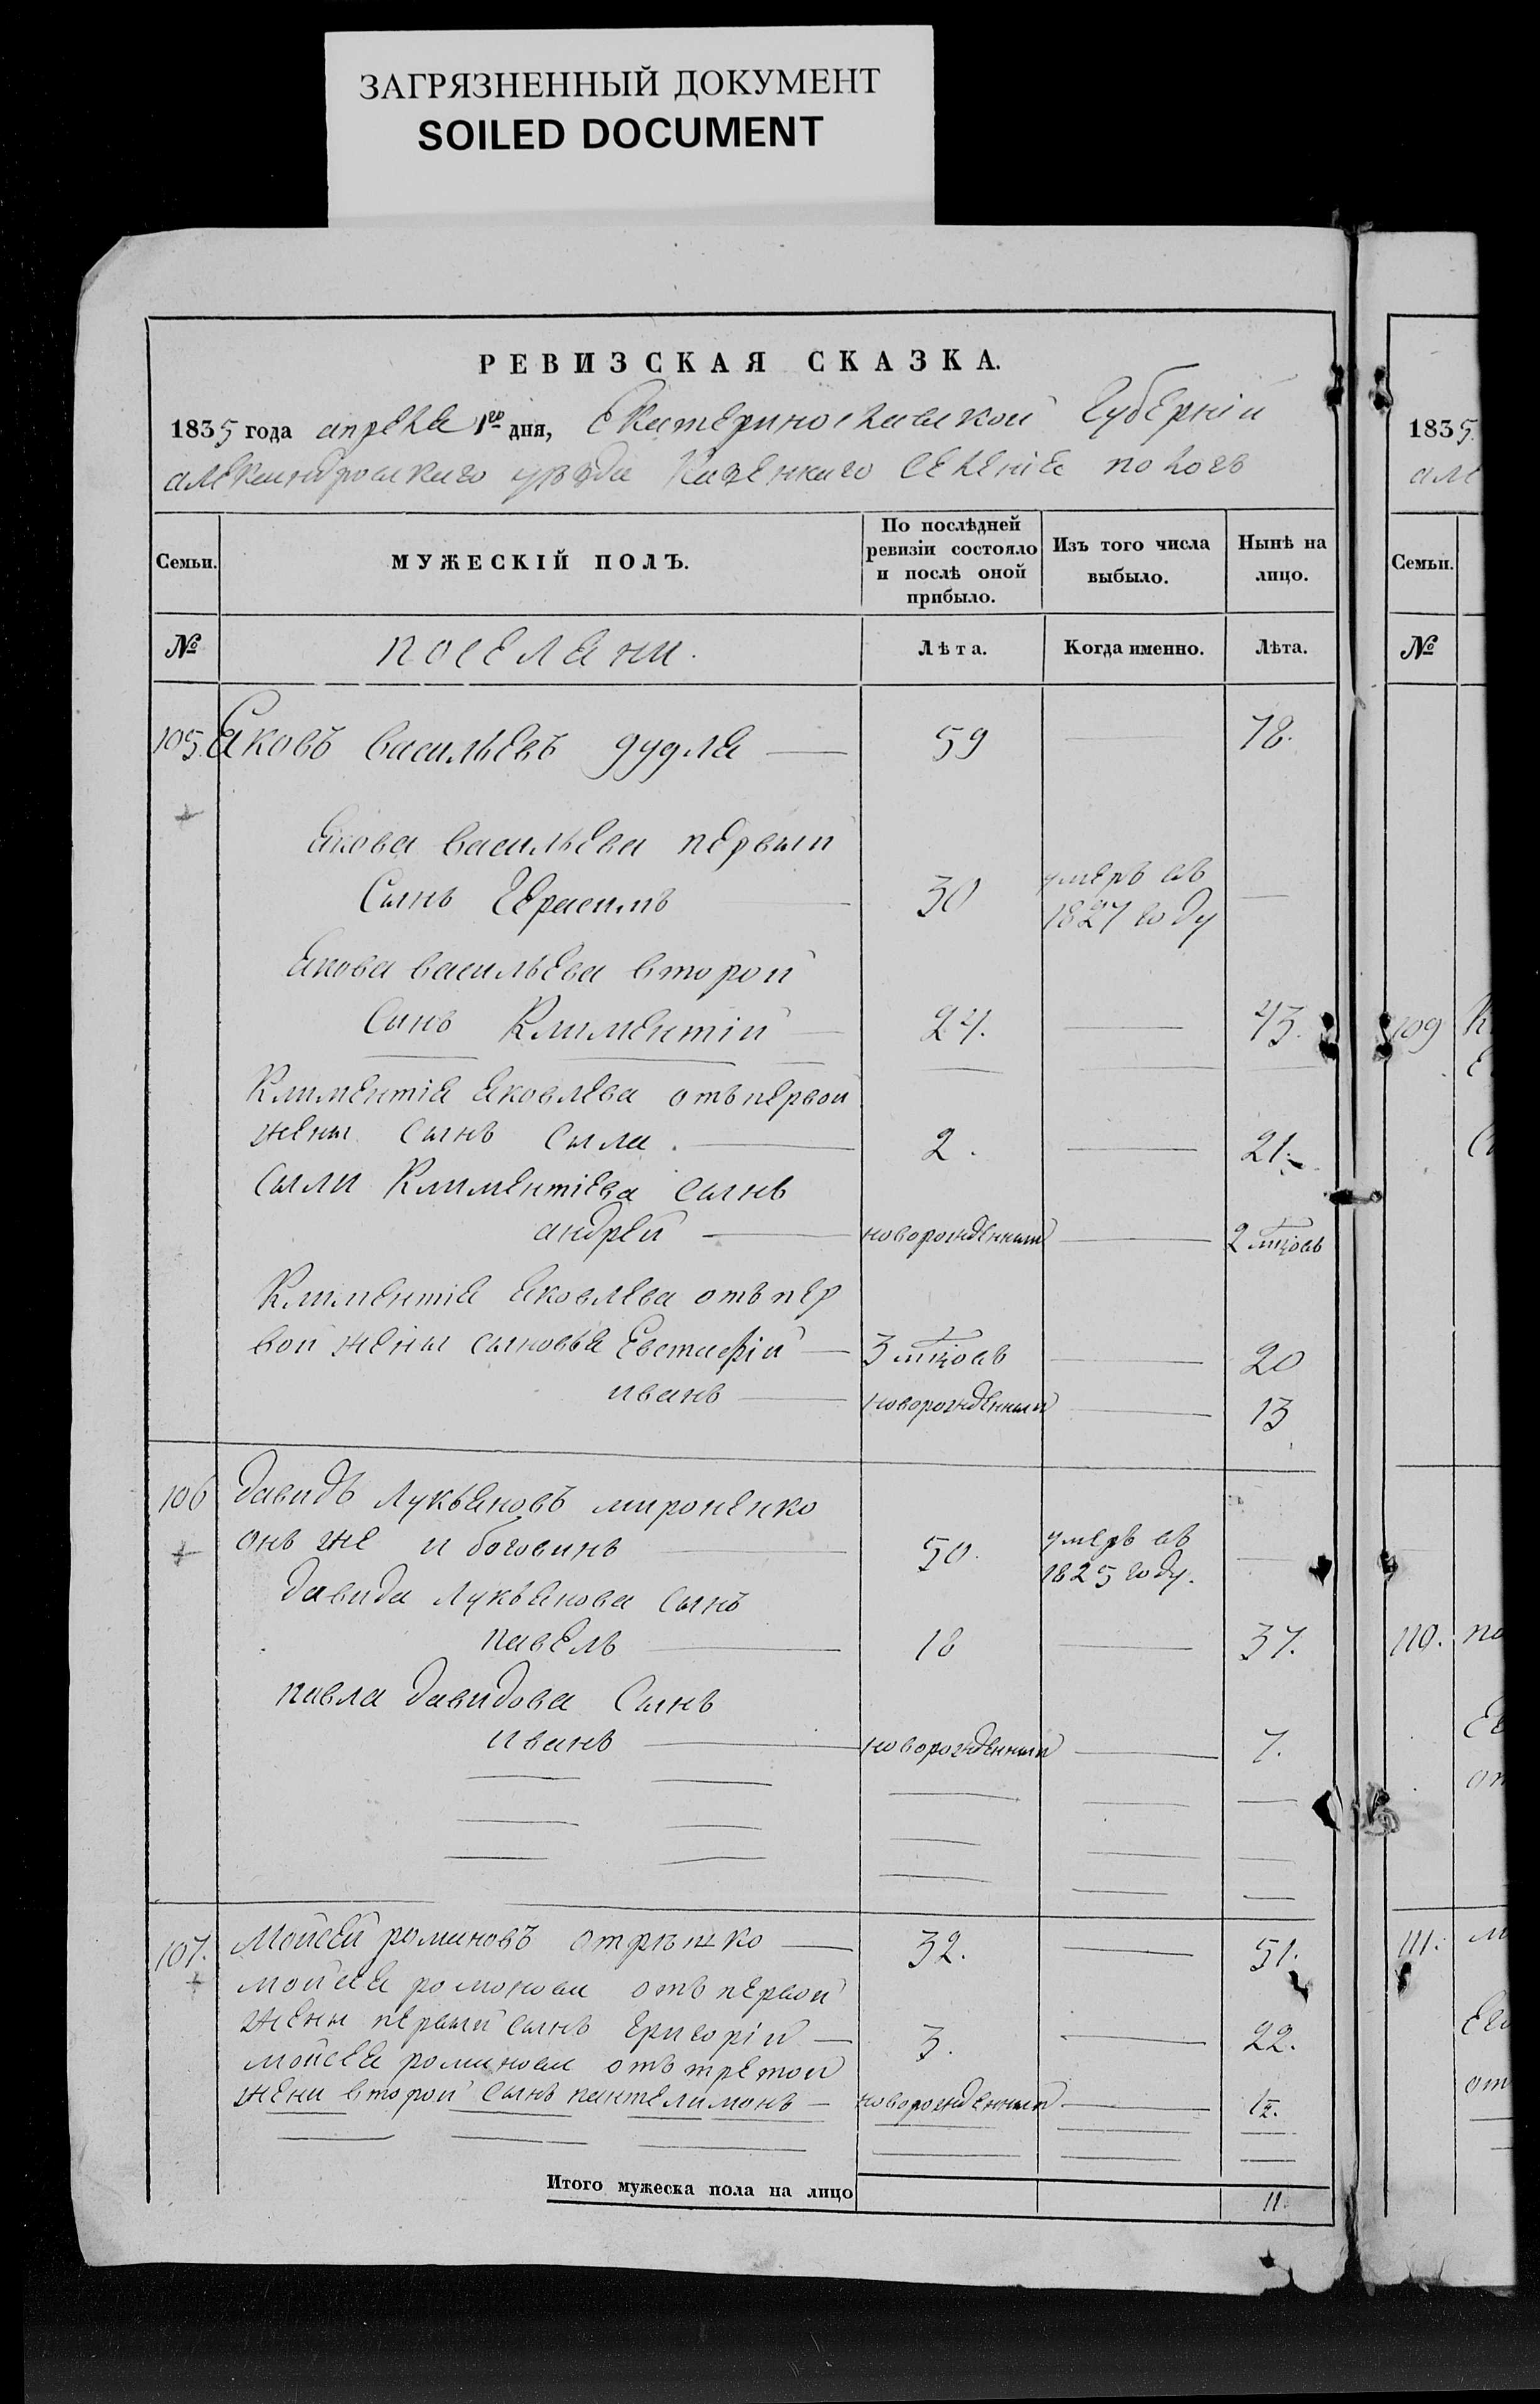 ЗАГРЯЗНЕННЫЙ ДОКУМЕНТ
SOILED DOCUMENT
РЕВИЗСКАЯ СКАЗКА.
1835 года апреля 1го дня, Екатериносlавской Губерніи
александровскаго уѣзда Казеннаго селенія пологъ
Семьи. МУЖЕСКІЙ ПОЛЪ. По послѣдней ревизіи состояло и послѣ оной прибыло. Изъ того числа выбыло. Нынѣ на лицо.
№ поселяни. Лѣта. Когда именно. Лѣта.
105. Яковъ васильевъ дудля 59 78.
Якова васильева первыи
Сынъ Герасимъ 30 умеръ въ 1827 году
Якова васильева второй
Синъ Климентій 24. 43.
Климентія яковлева отъ первои
жены сынъ Сыла. 2. 21.
Сыли Климентіева сынъ
андрей новорожденный 2 мцовъ
Климентія яковлева отъ пер
вои жены сыновья Евстафій 3 мцовъ 20
иванъ новорожденныи 13
106 давидъ Лукьяновъ мироненко
онъ же и боговинъ 50. умеръ въ 1825 году.
давида Лукьянова сынъ
павелъ 18 37.
павла давидова Сынъ
иванъ новорожденныи 7.
107. Моисей романовъ отрѣшко 32. 51.
моисея романова отъ первой
жены первый сынъ григорій 3. 22.
моисея романова отъ третои
жени второй сынъ пантелимонъ новорожденныи 1/2.
Итого мужеска пола на лицо 11.
1835
ал
Семьи.
№
109
110. по
111.
от